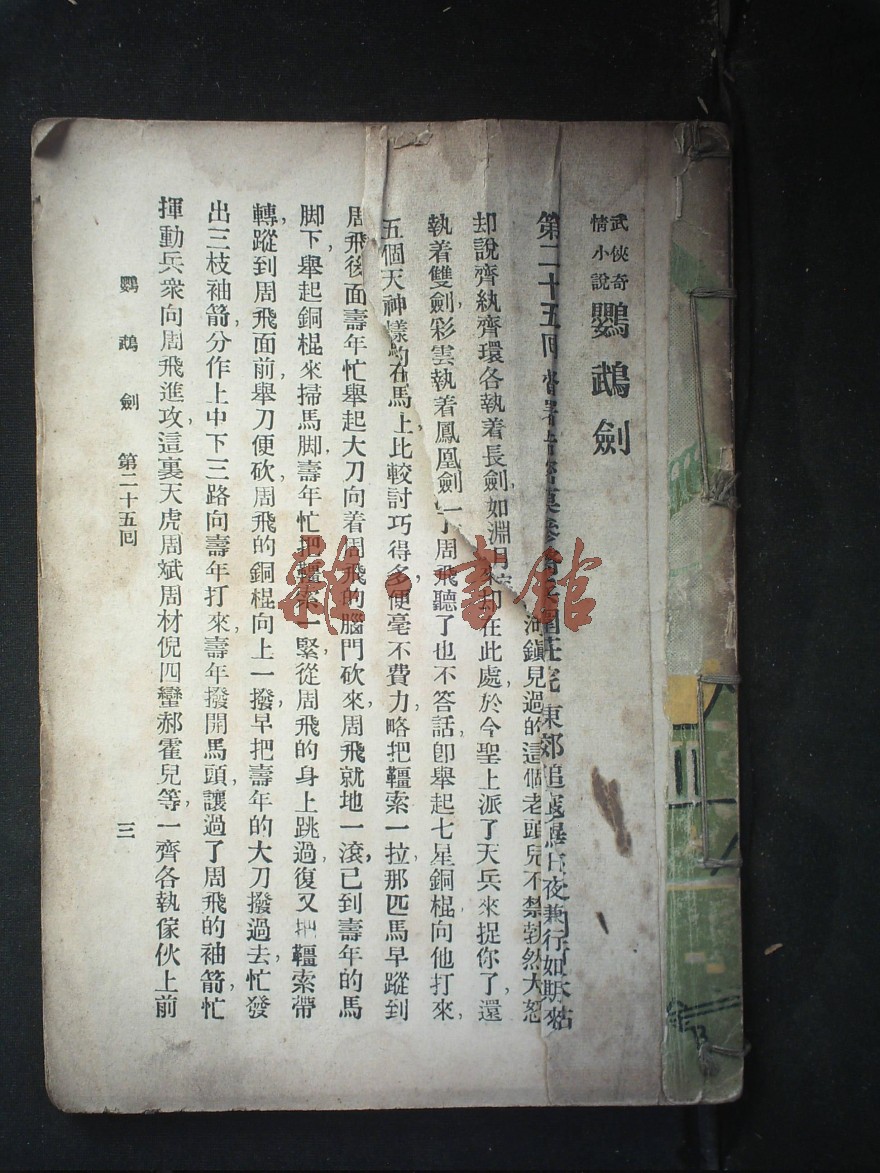 武俠奇
情小說
鸚鵡劍
第二十五回
東郊追
日夜兼行如期
却說齊紈齊環各執着長劍如淵
河鎮見過的這個老頭兒不禁勃然大怒
執着雙劍彩雲執着鳳凰劍
却在此處於今聖上派了天兵來捉你了還
五個天神樣的在馬上比較討巧得多便毫不費力略把韁索一拉那匹馬早蹤到
周飛聽了也不答話卽舉起七星銅棍向他打來
周飛後面壽年忙舉起大刀向着周飛的腦門砍來周飛就地一滾已到壽年的馬
脚下舉起銅棍來掃馬脚壽年忙把韁索一緊從周飛的身上跳過復又把韁索帶
轉蹤到周飛面前舉刀便砍周飛的銅棍向上一撥早把壽年的大刀撥過去忙發
出三枝袖箭分作上中下三路向壽年打來壽年撥開馬頭讓過了周飛的袖箭忙
揮動兵衆向周飛進攻這裏天虎周斌周材倪四蠻郝霍兒等一齊各執傢伙上前
鸚鵡劍 第二十五回 三
雜·書館